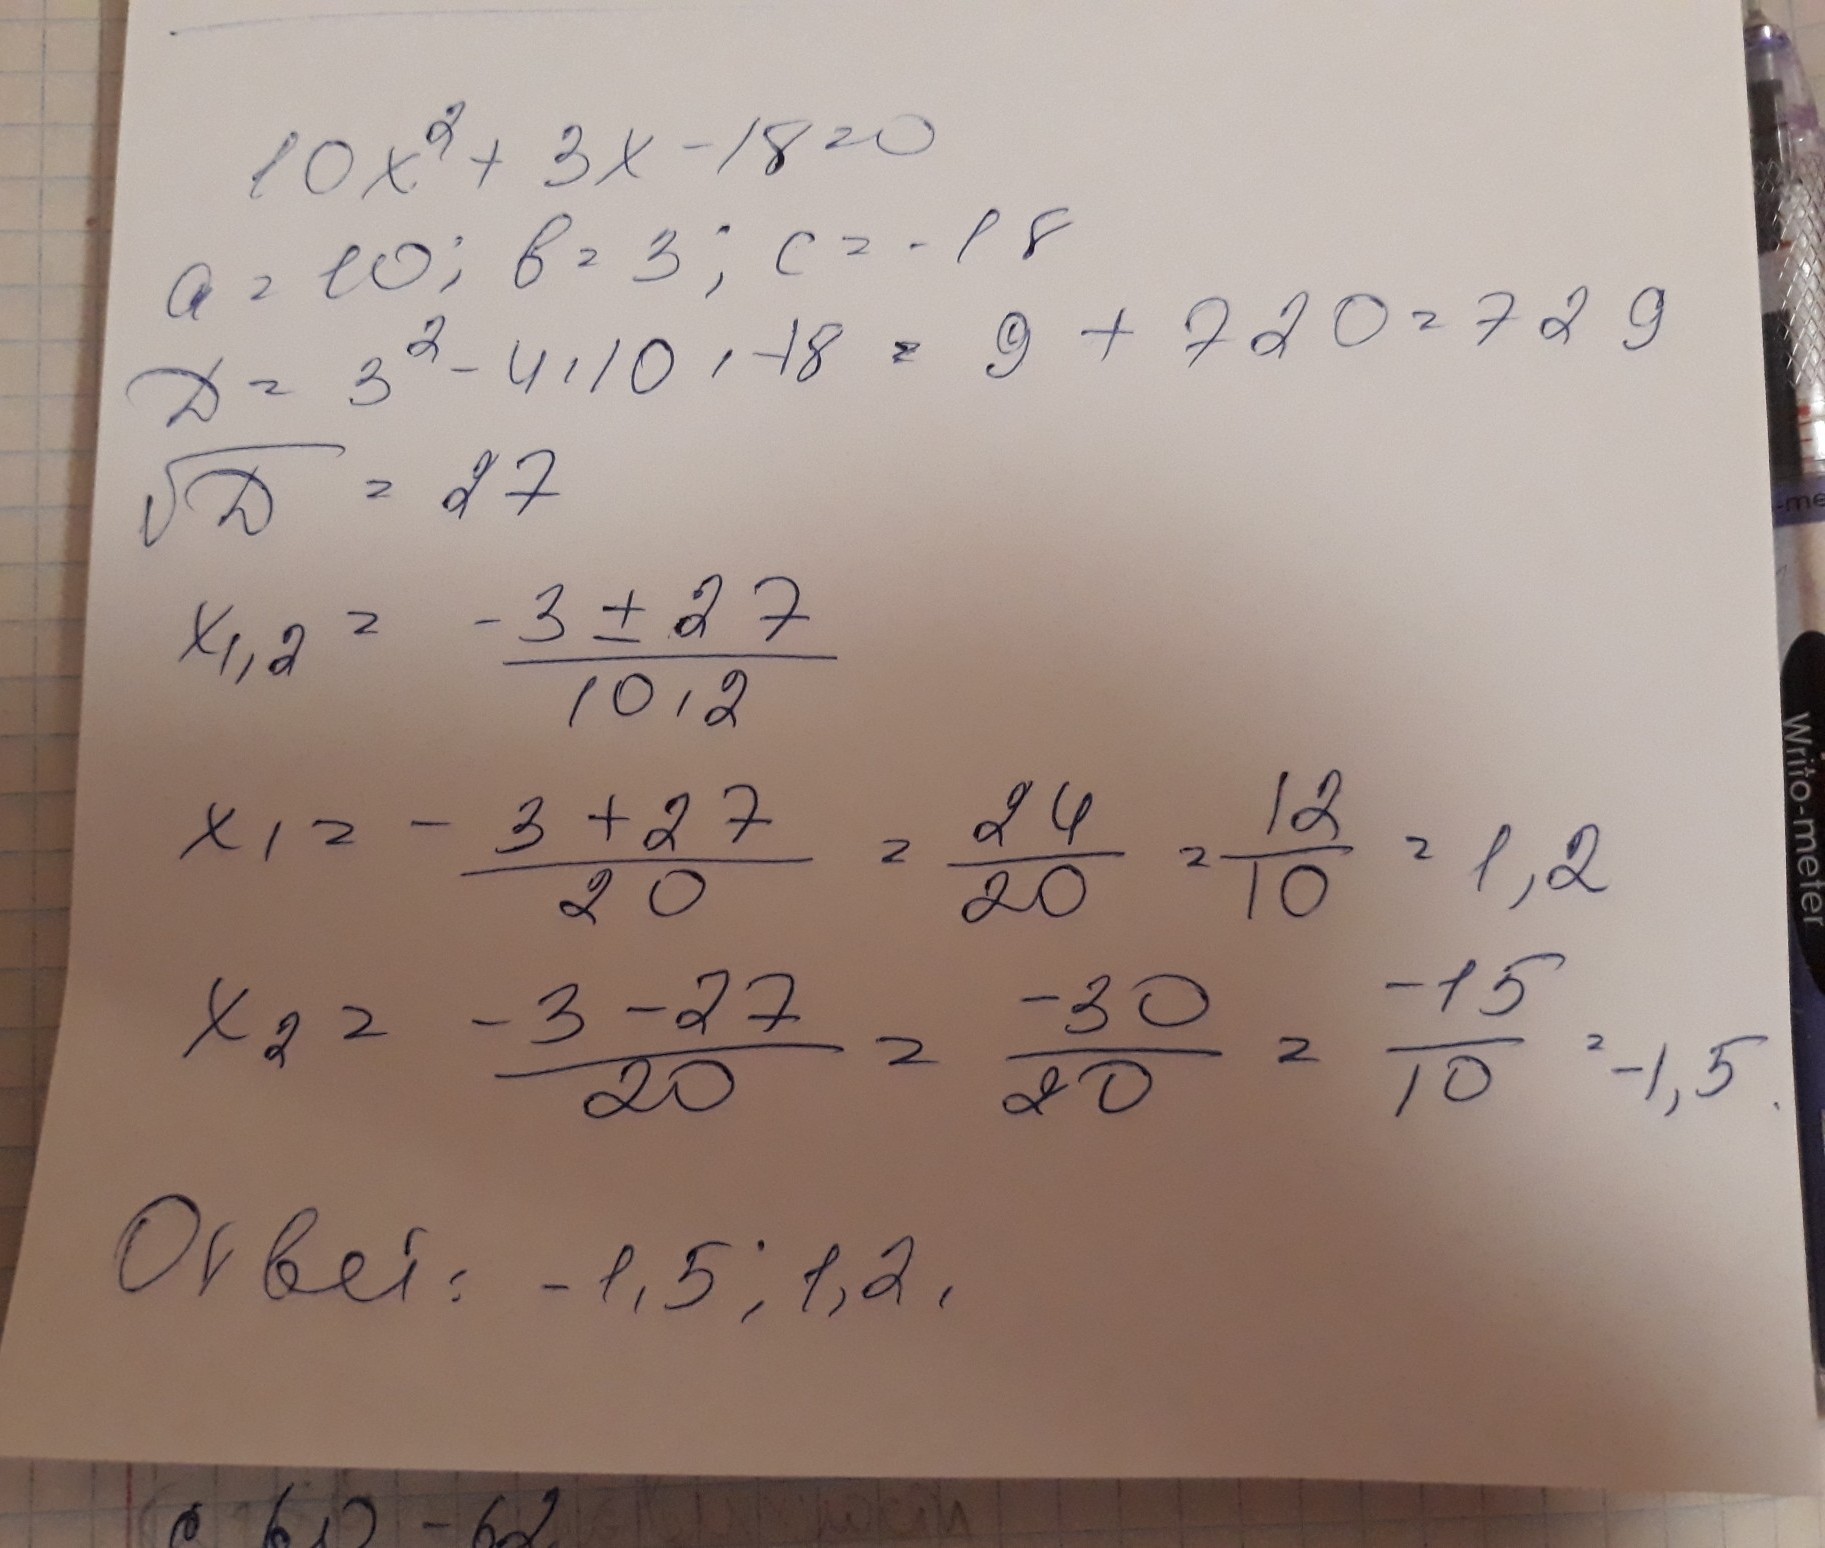 10x² + 3x - 18 = 0
a = 10; b = 3; c = -18
D = 3² - 4 · 10 · -18 = 9 + 720 = 729
√D = 27
x1,2 = (-3 ± 27)/(10 · 2)
x1 = -3 + 27/20 = 24/20 = 12/10 = 1,2
x2 = (-3 - 27)/20 = -30/20 = -15/10 = -1,5.
Ответ: -1,5; 1,2.
Writo-meter